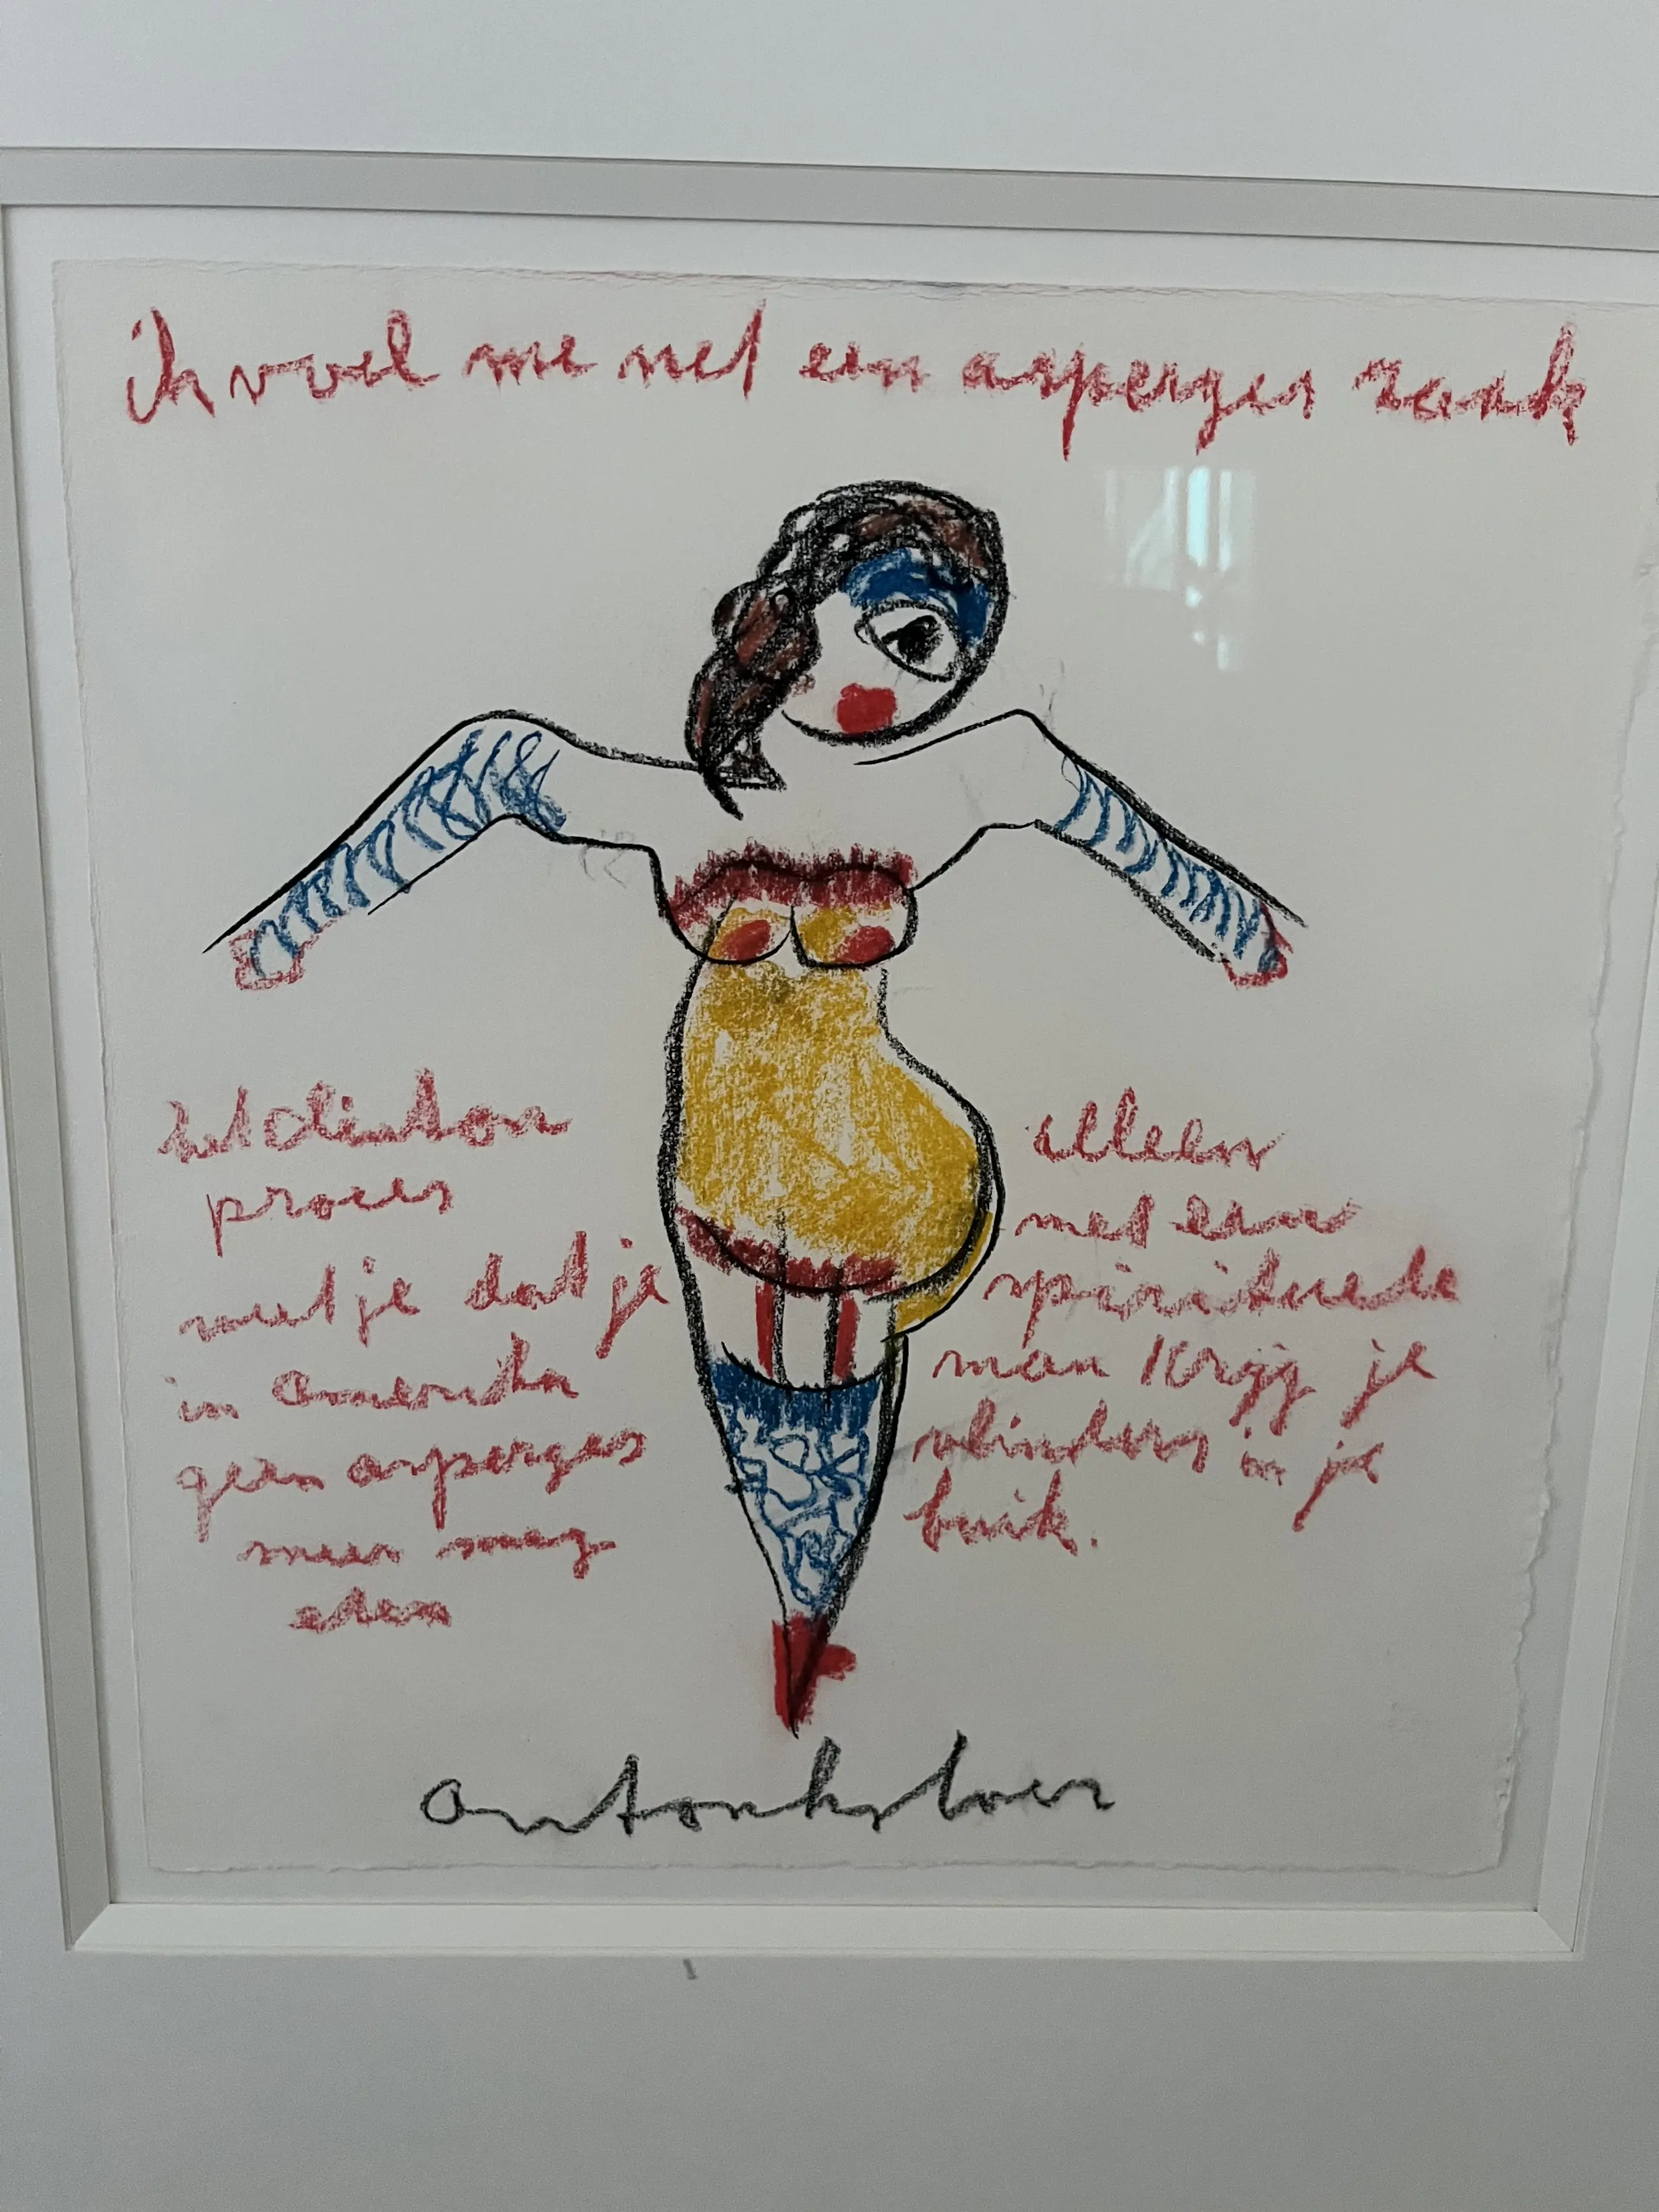 ik voel me net een asperges zank
het clinton
proces
weet je dat je
in Amerika
geen asperges
meer mag
eten
alleen
met een
spirituele
man krijg je
vlinders in je
buik.